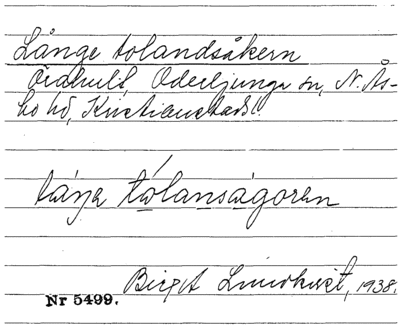 Långe tolandsåkern
Örahult, Oderljunga sn, N. Ås-
bo hd, Kristianstads l.
låŋa tólansågoren
Birgit Lundkvist, 1938.
Nr 5499.